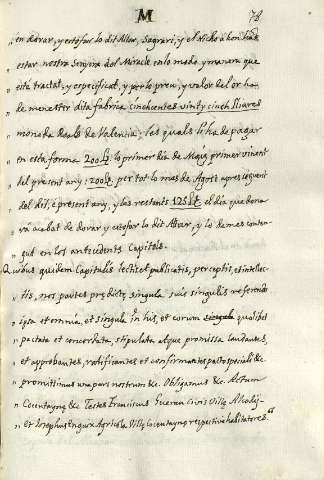 M 78
en dorar, y estofar lo dit Altar, Sagrari, y el Nicho ahon ha de
estar nostra Senyora del Miracle en lo modo, y manera que
està tractat, y especificat, y per lo preu, y valor del or ha
de menester dita fabrica cinchcentes vint y cinch lliures
moneda Reals de Valencia; les quals li ha de pagar
en esta forma 200 ₤ lo primer dia de Maig primer vinent
del present any; 200 ₤ per tot lo mes de Agost apres seguent
del dit, è present any, y les restants 125 ₤ el dia que dona
rà acabat de dorar y estofar lo dit Altar, y lo demes conten
gut en los antecedents Capitols.
Quibus quidem Capitulis lectis et publicatis, perceptis, et intellec-
tis, nos partes prędictę, singula suis singulis referendo
ipsa et omnia, et singula in his, et eorum singula qualibet
pactata et concordata, stipulata atque promissa laudantes,
et approbantes, ratificantes et confirmantes pacto speciali &c
promittimus una pars nostrum &c. Obligamus &c. Actum
Cocentaynę &c Testes Franciscus
et Josephus Agricola Villę Cocentaynę respective habitatores